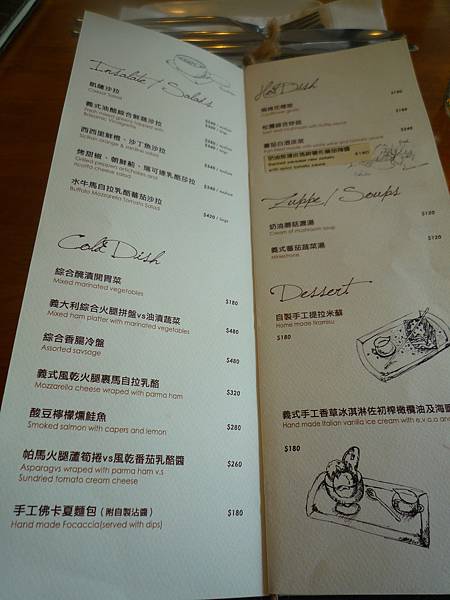 Insalate / Salads
凱薩沙拉
Caesar Salad
義式油醋綜合鮮蔬沙拉
Fresh mixed greens topped with
Balsamic Vinaigrette
西西里鮮橙、沙丁魚沙拉
Sicilian orange & sardines salad
烤甜椒、朝鮮薊、瑞可達乳酪莎拉
Grilled peppers artichokes and
ricotta cheese salad
$340
水牛馬自拉乳酪蕃茄沙拉
Buffalo Mozzarella Tomato Salad
$420 / large
Cold Dish
綜合醃漬開胃菜
Mixed marinated vegetables
$180
義大利綜合火腿拼盤vs油漬蔬菜
Mixed ham platter with marinated vegetables
$480
綜合香腸冷盤
Assorted savsage
$480
義式風乾火腿裹馬自拉乳酪
Mozzarella cheese wraped with parma ham
$320
酸豆檸檬燻鮭魚
Smoked salmon with capers and lemon
$280
帕馬火腿蘆筍捲vs風乾蕃茄乳酪醬
Asparagvs wraped with parma ham v.s
Sundried tomato cream cheese
$260
手工佛卡夏麵包（附自製沾醬）
Hand made Focaccia(served with dips)
$180
Hot Dish
$180
$240
蕃茄白酒淡菜
$240
$140
with spicy tomato sauce
Zuppe / Soups
奶油蘑菇濃湯
Cream of mushroom soup
$120
義式蕃茄蔬菜湯
Minestrone
$120
Dessert
自製手工提拉米蘇
Home made tiramisu
$180
義式手工香草冰淇淋佐初榨橄欖油及海
Hand made Italian vanilla ice cream with e.v.o.o and
$180